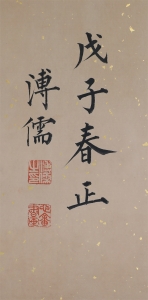 戊子春正
溥儒